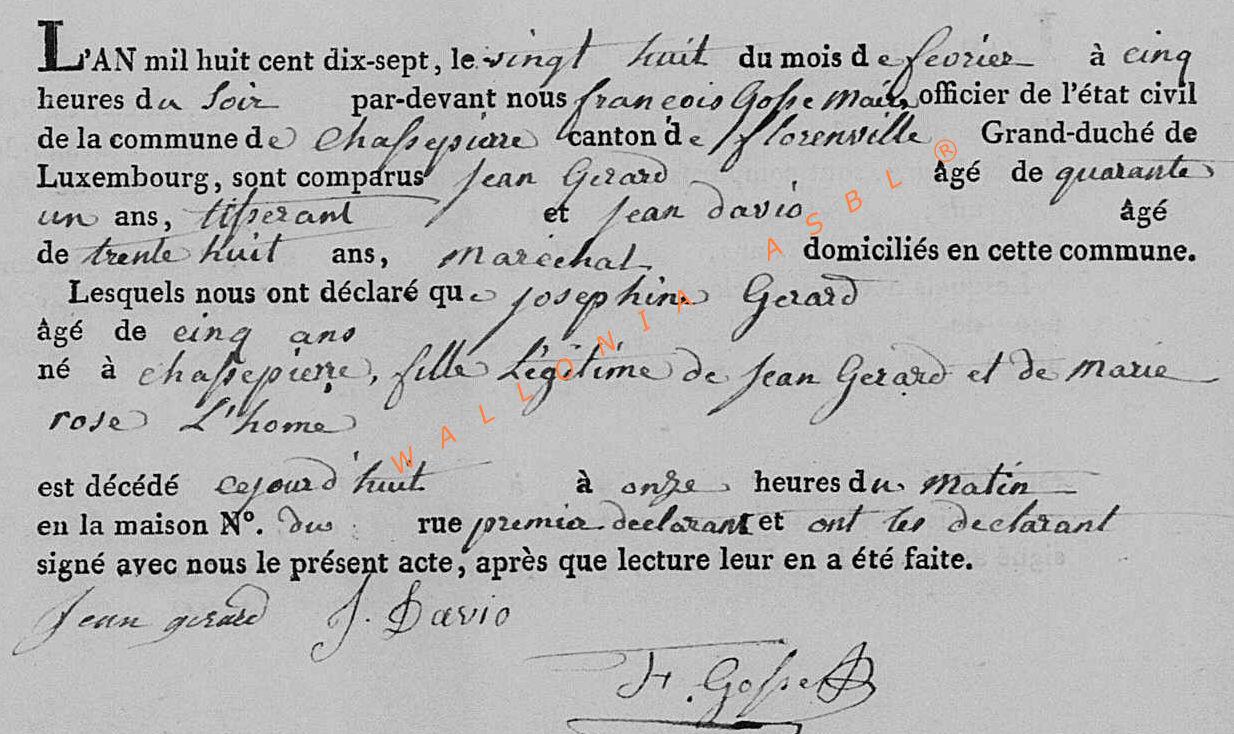 L'AN mil huit cent dix-sept, le vingt huit du mois de fevrier à cinq
heures du Soir par-devant nous françois Gosse Maire officier de l'état civil
de la commune de Chassepierre canton de florenville Grand-duché de
Luxembourg, sont comparus Jean Gerard âgé de quarante
un ans, tisserant et Jean davio âgé
de trente huit ans, Marechal domiciliés en cette commune.
Lesquels nous ont déclaré que Josephine Gerard
âgé de cinq ans
né à chassepierre, fille Légitime de Jean Gerard et de marie
rose L'home
est décédé cejourd'huit à onze heures du Matin
en la maison Nº. du rue premier declarant et ont les declarant
signé avec nous le présent acte, après que lecture leur en a été faite.
Jean gerard J. Davio
F. Gosse
WALLONIA ASBL ®